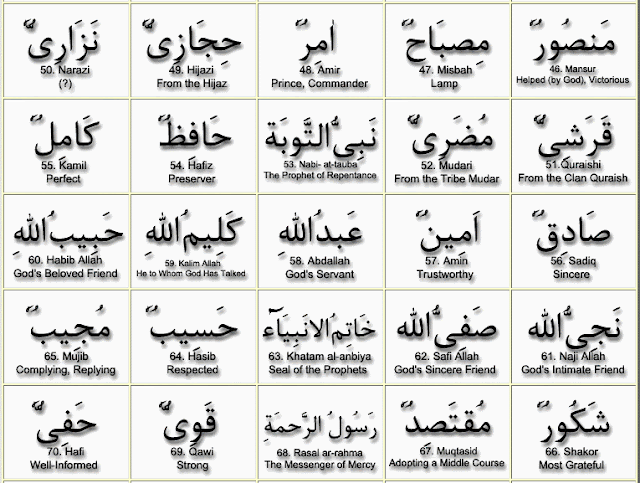 مَنصُورٌ
46. Mansur
Helped (by God), Victorious
مِصبَاحٌ
47. Misbah
Lamp
اٰمِرٌ
48. Amir
Prince, Commander
حِجَازِىٌّ
49. Hijazi
From the Hijaz
نَزَارِىٌّ
50. Narazi
(?)
قَرَشِىٌّ
51. Quraishi
From the Clan Quraish
مُضَرِىٌّ
52. Mudari
From the Tribe Mudar
نَبِىُّ التَّوبَةِ
53. Nabi- at-tauba
The Prophet of Repentance
حَافِظٌ
54. Hafiz
Preserver
كَامِلٌ
55. Kamil
Perfect
صَادِقٌ
56. Sadiq
Sincere
اَمِينٌ
57. Amin
Trustworthy
عَبدُ اللهِ
58. Abdallah
God's Servant
كَلِيمُ اللهِ
59. Kalim Allah
He to Whom God Has Talked
حَبِيبُ اللهِ
60. Habib Allah
God's Beloved Friend
نَجِىُّ الله
61. Naji Allah
God's Intimate Friend
صَفِىُّ الله
62. Safi Allah
God's Sincere Friend
خَاتِمُ الانبِيَآء
63. Khatam al-anbiya
Seal of the Prophets
حَسِيبٌ
64. Hasib
Respected
مُجِيبٌ
65. Mujib
Complying, Replying
شَكُورٌ
66. Shakor
Most Grateful
مُقتَصِدٌ
67. Muqtasid
Adopting a Middle Course
رَسُولُ الرَّحمَةِ
68. Rasal ar-rahma
The Messenger of Mercy
قَوِىٌّ
69. Qawi
Strong
حَفِىٌّ
70. Hafi
Well-Informed